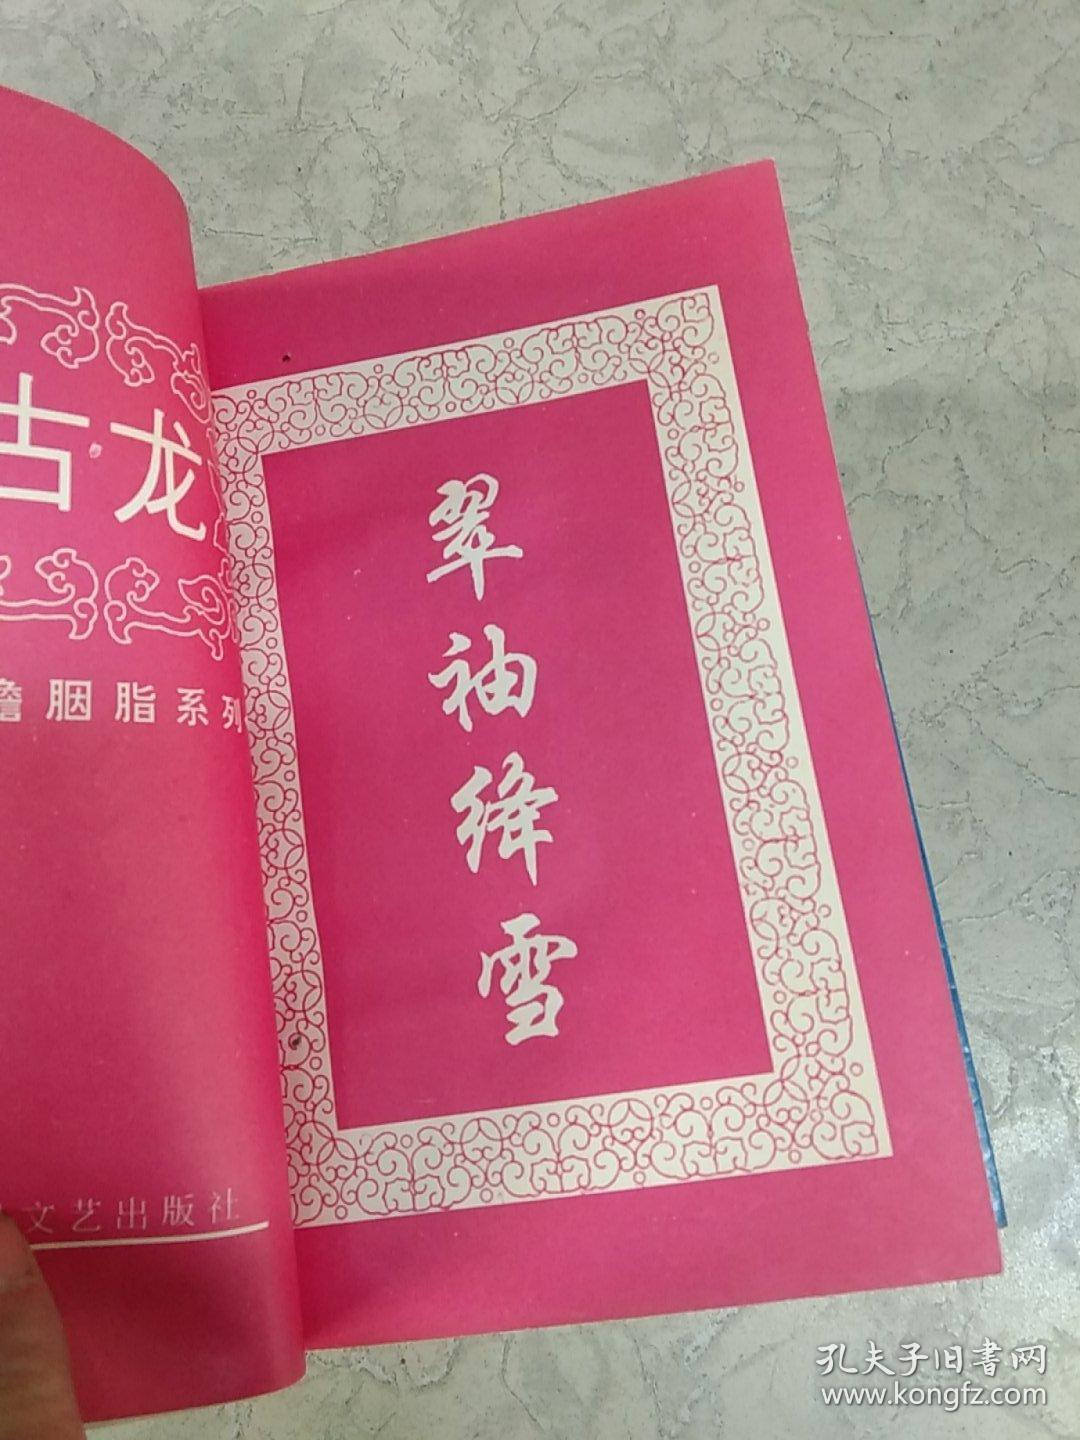 古龙
胭脂系列
文艺出版社
翠袖绛雪
孔夫子旧書网
www.kongfz.com